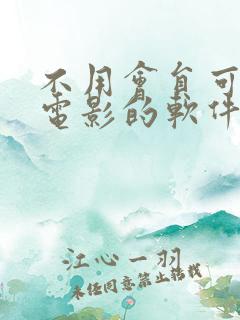 不用會員可
電影的軟件
江心一羽
未经同意禁止转载